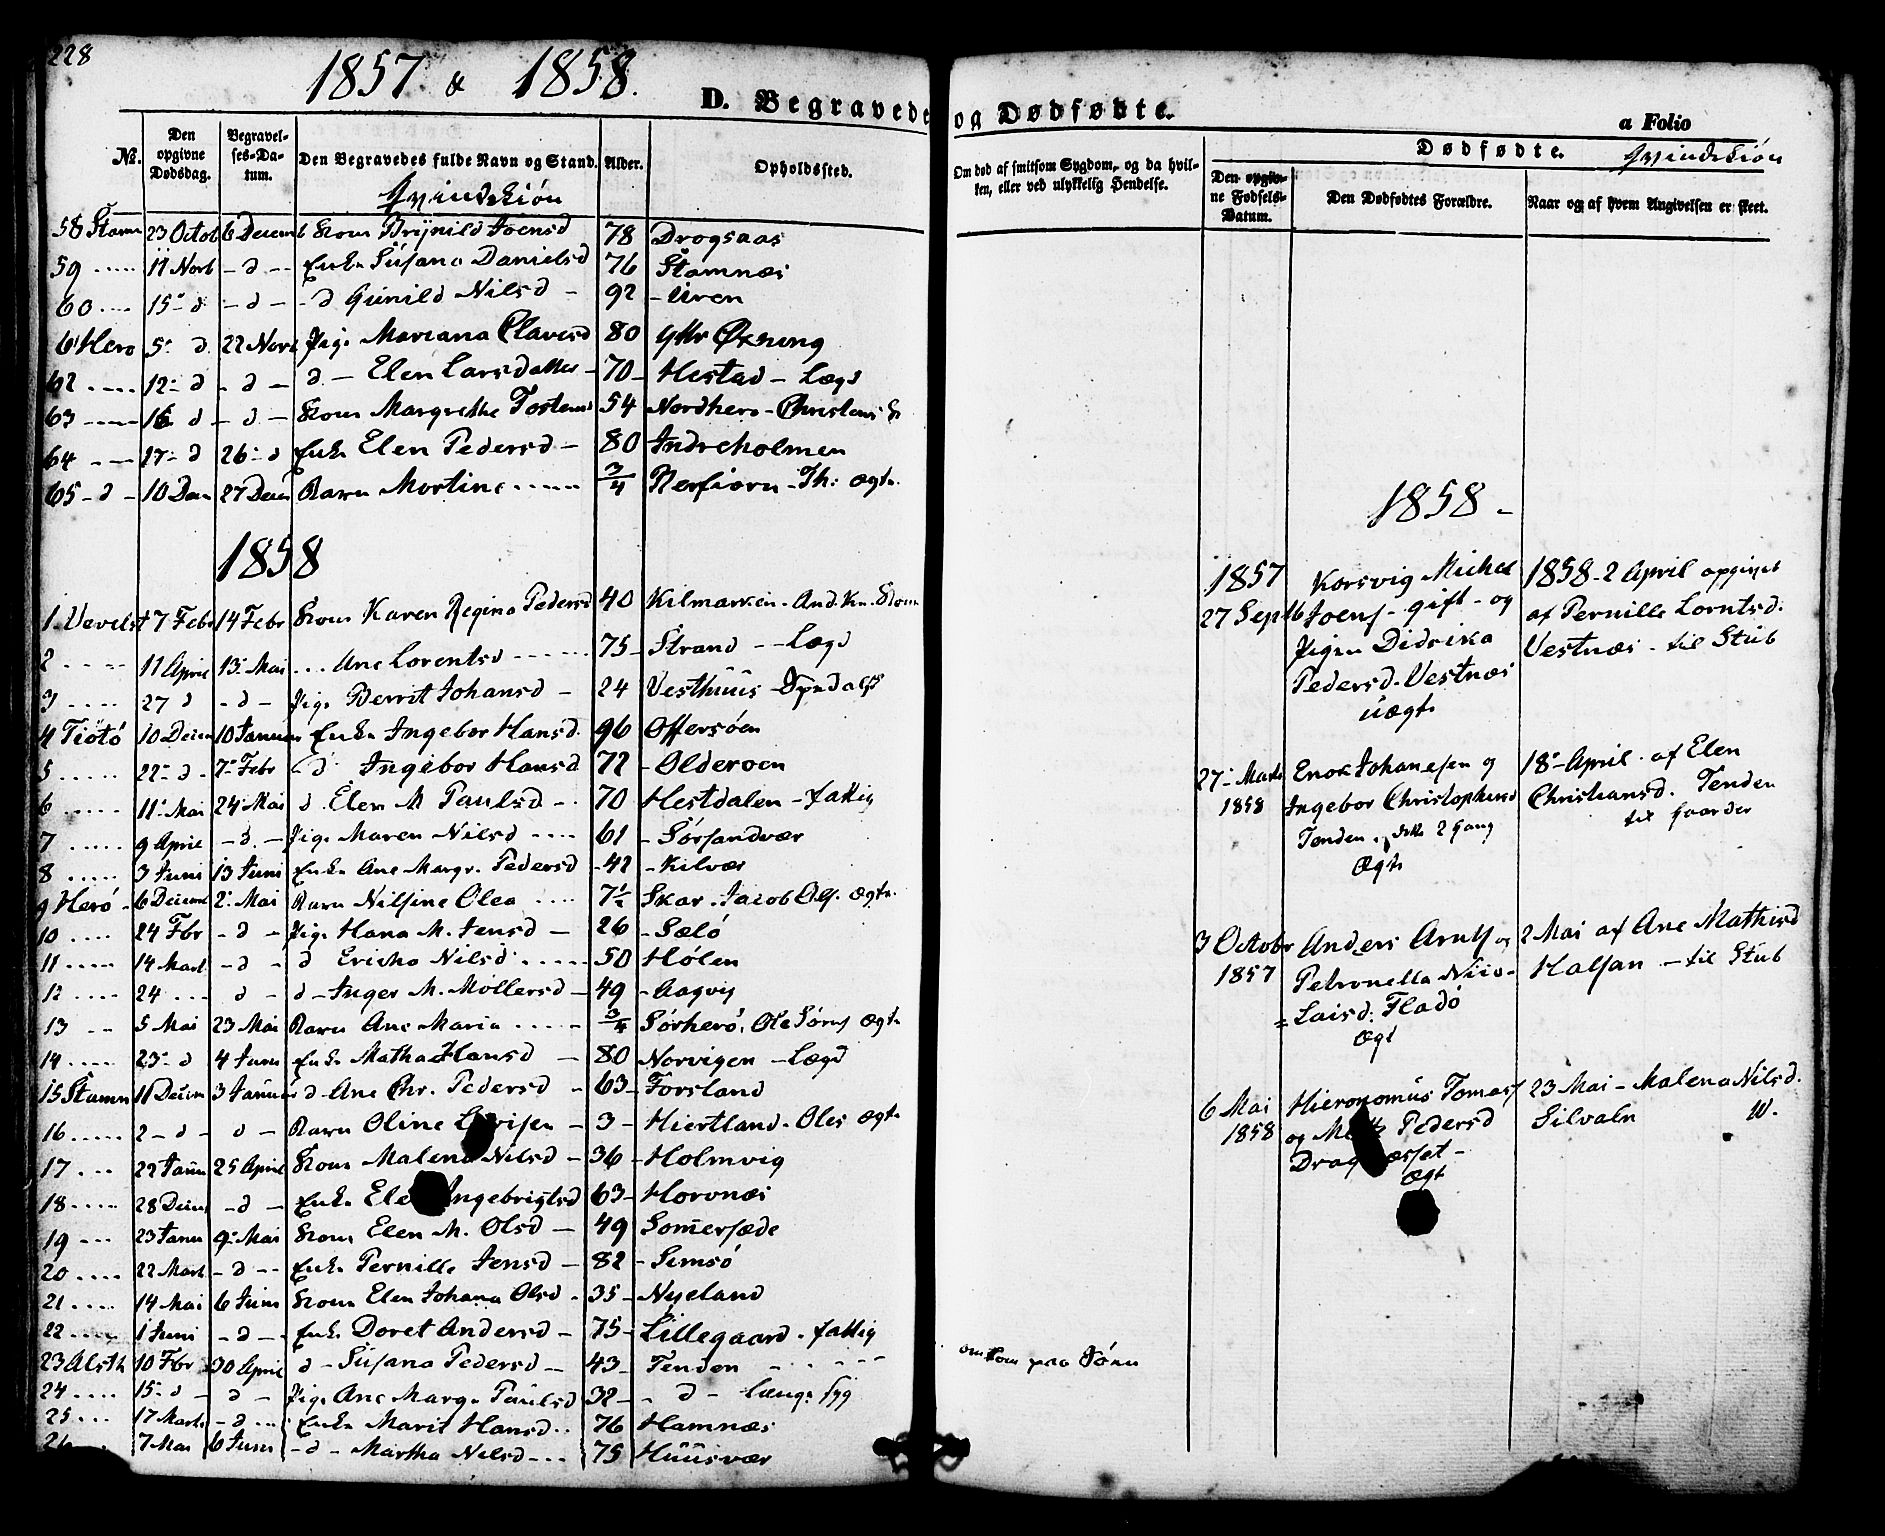 228
1857 & 1858.
D. Begravede og Dødfødte.
a Folio
No. Den opgivne Dødsdag. Begravelses-Datum. Den Begravedes fulde Navn og Stand. Alder. Opholdssted. Om død af smitsom Sygdom, og da hvilken, eller ved ulykkelig Hendelse.
Qvindekiøn
Dødfødte. Qvindekiøn
Den opgivne Fødsels-Datum. Den Dødfødtes Forældre. Naar og af hvem Angivelsen er skeet.
58 Stamn 23 Octob 6 Decemb Kone Brynild Joensd 78 Drogsaas
59 11 Novb - d - Enke Susana Danielsd 76 Stamnæs
60 15 d - d - - d Gunild Nilsd - 92 - Uren
61 Herø 5 d 22 Nov Pige Mariana Olavesd 80 Ytter Øxning
62 12 d - d - d - Elen Larsdatter - 70 - Hestad - Lægd
63 16 d - d - Kone Margrethe Tostens 54 Nordherø - Christens K
64 17 d 26 d Enke Elen Pedersd - 80 Indreholmen
65 - d - 10 Dec 27 Decb Barn Martine 3/4 Rerfiorn - Th: Ægte
1858
1 Vevelst 7 Febr 14 Febr Kone Karen Regina Pedersd 40 Kilmarken - And. Kn. Kone
2 11 April 13 Mai Ane Lorentsd 75 Strand - Lægd
3 27 d - d - Pige Berrit Johansd - 24 Vesthuus
4 Tiøtø 10 Decem 10 Januar Enke Ingebor Hansd. 96 Offersøen
5 22 d 7 Febr - d Ingebor Hansd 72 - Olderoen
6 11 Mai 24 Mai d Elen M Paulsd - 70 Hestdalen - fattig
7 9 April - d - Pige Maren Nilsd 61 - Sørsandvær
8 3 Juni 13 Juni Enke Ane Margr. Pedersd - 42 - Kilvær
9 Herø 6 Decemb 2 Mai Barn Nilsine Olea 7 1/2 Skar. Jacob Ols. Ægte
10 24 Fbr - d - Pige Hana M. Jensd - 26 - Sølø
11 14 Mart - d - d Ericka Nilsd 50 Hølen
12 24 d - d - Inger M. Møllersd - 49 - Aagvig
13 5 Mai 23 Mai Barn Ane Maria 3/4 Sørherø, Ole Sørns Ægte
14 23 d 4 Juni Enke Matha Hansd - 80 Norvigen - Lægd
15 Stamn 11 Decem 3 Januar d - Ane Chr. Pedersd - 63 - Forsland
16 2 - d - d - Barn Oline - 3 - Hiertland - Oles Ægte
17 22 Janu 25 April Kone Malena Nilsd - 36 - Holmvig
18 28 Decem - d - Enke Elen Ingebrigtsd 63 - Horvnæs
19 23 Janu 9 Mai Kone Elen M. Olsd - 49 Somersæde
20 22 Mart - d - Enke Pernille Jensd - 82 - Simsø
21 14 Mai 6 Juni Kone Elen Johana Olsd - 35 - Nyeland
22 1 Juni - d - Enke Doret Andersd - 75 - Lillegaard - fattig
23 Alsth 10 Fbr 30 April d - Susana Pedersd - 43 - Tenden omkom paa Søen
24 15 d - d - Pige Ane Margr Paulsd 32 - - d - Længe syg
25 17 Mart - d Enke Marit Hansd 76 Hamnæs
26 7 Mai 6 Juni - d - Martha Nilsd 75 Huusvær
1858 -
1857 Korsvig Michel 1858 - 2 April opgivet
27 Sept Joens - gift - og af Pernille Lorntsd.
Pigen Didrika Vestnæs - til Stub
Pedersd. Vestnæs
uægte
27 Marts Enok Johanesen og 18 April af Elen
1858 Ingebor Christophersd Christiansd. Tenden
Tenden, dette 2 Gang til Gaarder
Ægte
3 Octobr Anders Arnts og 2 Mai af Ane Mathisd
1857 Petronella Nico- Halsan - til Stub
= Laisd. Fladø
Ægt
6 Mai Hieronomus Tomas 23 Mai - Malena Nilsd.
1858 og Pedersd Silvaln
Ægt